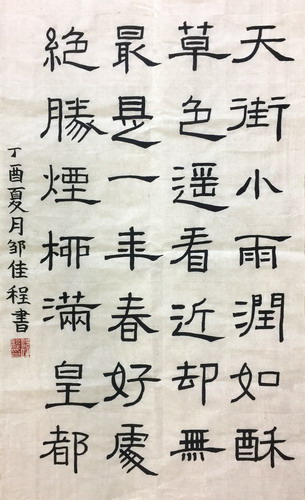 天街小雨潤如酥
草色遥看近却無
最是一年春好處
絶勝煙柳滿皇都
丁酉夏月邹佳程書